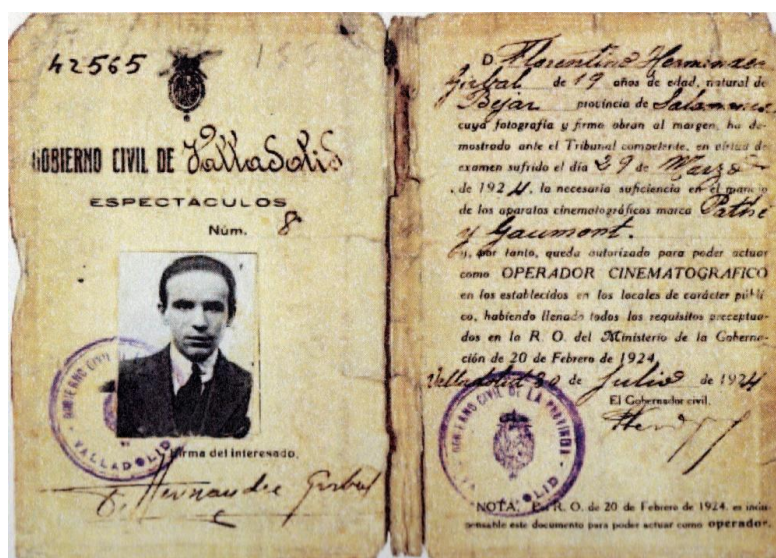 42565
GOBIERNO CIVIL DE Valladolid
ESPECTACULOS
Núm. 8
GOBIERNO CIVIL
VALLADOLID
Firma del interesado,
F. Hernandez Girbal
D. Florentino Hernandez
Girbal de 19 años de edad, natural de
Bejar provincia de Salamanca
cuya fotografía y firma obran al margen, ha de-
mostrado ante el Tribunal competente, en virtud de
examen sufrido el día 29 de Marzo
de 1924, la necesaria suficiencia en el manejo
de los aparatos cinematográficos marca Pathé
y Gaumont.
y, por tanto, queda autorizado para poder actuar
como OPERADOR CINEMATOGRAFICO
en los establecidos en los locales de carácter públi-
co, habiendo llenado todos los requisitos preceptua-
dos en la R. O. del Ministerio de la Goberna-
ción de 20 de Febrero de 1924.
Valladolid 30 de Julio de 1924
El Gobernador civil,
GOBIERNO CIVIL DE LA PROVINCIA
VALLADOLID
NOTA. R. O. de 20 de Febrero de 1924, es indis-
pensable este documento para poder actuar como operador.